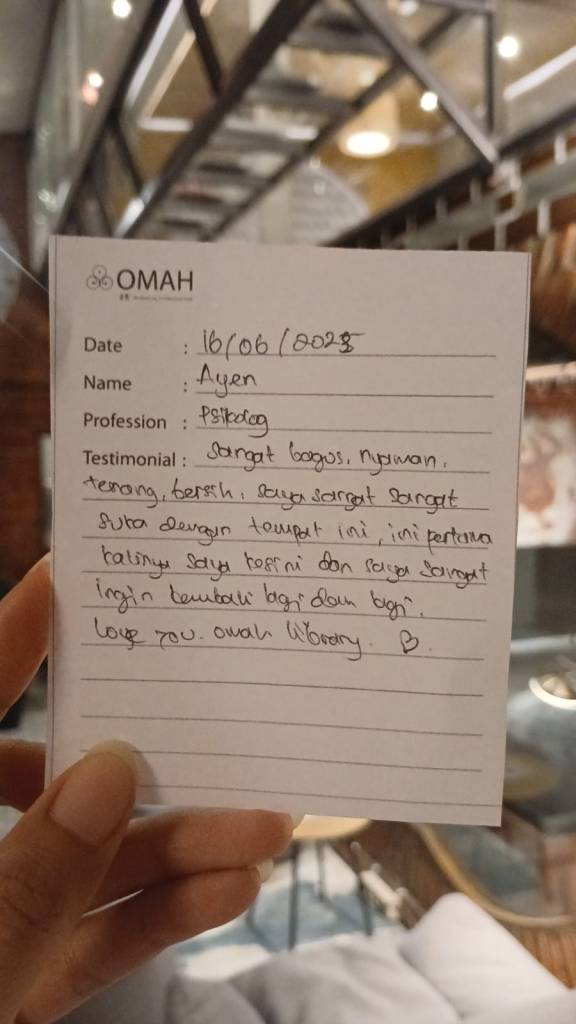 OMAH
Date : 16/06/2025
Name : Ayen
Profession : Psikolog
Testimonial : Sangat bagus, nyaman,
tenang, bersih, saya sangat sangat
suka dengan tempat ini, ini pertama
kalinya saya kesini dan saya sangat
ingin kembali lagi dan lagi.
Love you. omah library.